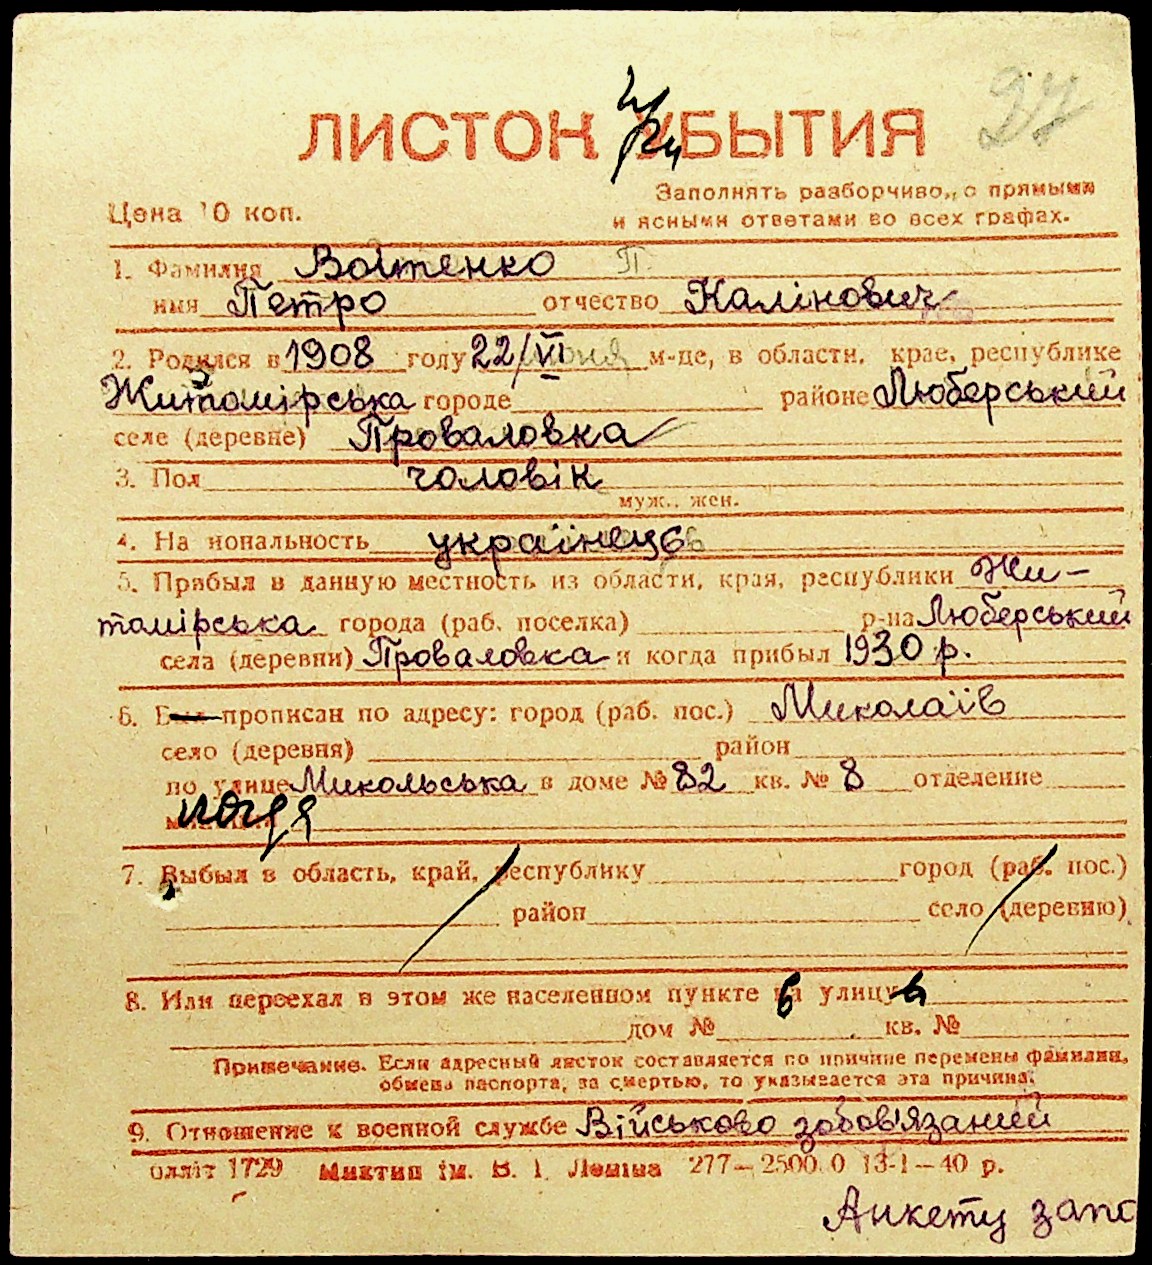 27
ЛИСТОК УБЫТИЯ
Заполнять разборчиво, с прямыми
Цена 10 коп.
и ясными ответами во всех графах.
1. Фамилия Войтенко П.
имя Петро отчество Калінович
2. Родился в 1908 году 22/VI м-це, в области, крае, республике
Житомірська городе районе Люберський
селе (деревне) Проваловка
3. Пол чоловік
муж., жен.
4. Национальность українець
5. Прибыл в данную местность из области, края, республики Жи-
томірська города (раб. поселка) р-на Люберський
села (деревни) Проваловка и когда прибыл 1930 р.
6. Был прописан по адресу: город (раб. пос.) Миколаїв
село (деревня) район
по улице Микольська в доме № 82 кв. № 8 отделение
когда
7. Выбыл в область, край, республику город (раб. пос.)
район село (деревню)
8. Или переехал в этом же населенном пункте в улицу
дом № кв. №
Примечание. Если адресный листок составляется по причине перемены фамилии,
обмена паспорта, за смертью, то указывается эта причина.
9. Отношение к военной службе Військово зобов'язаний
олліт 1729 Миктип ім. В. І. Леніна 277—25000 13-1—40 р.
Анкету запо